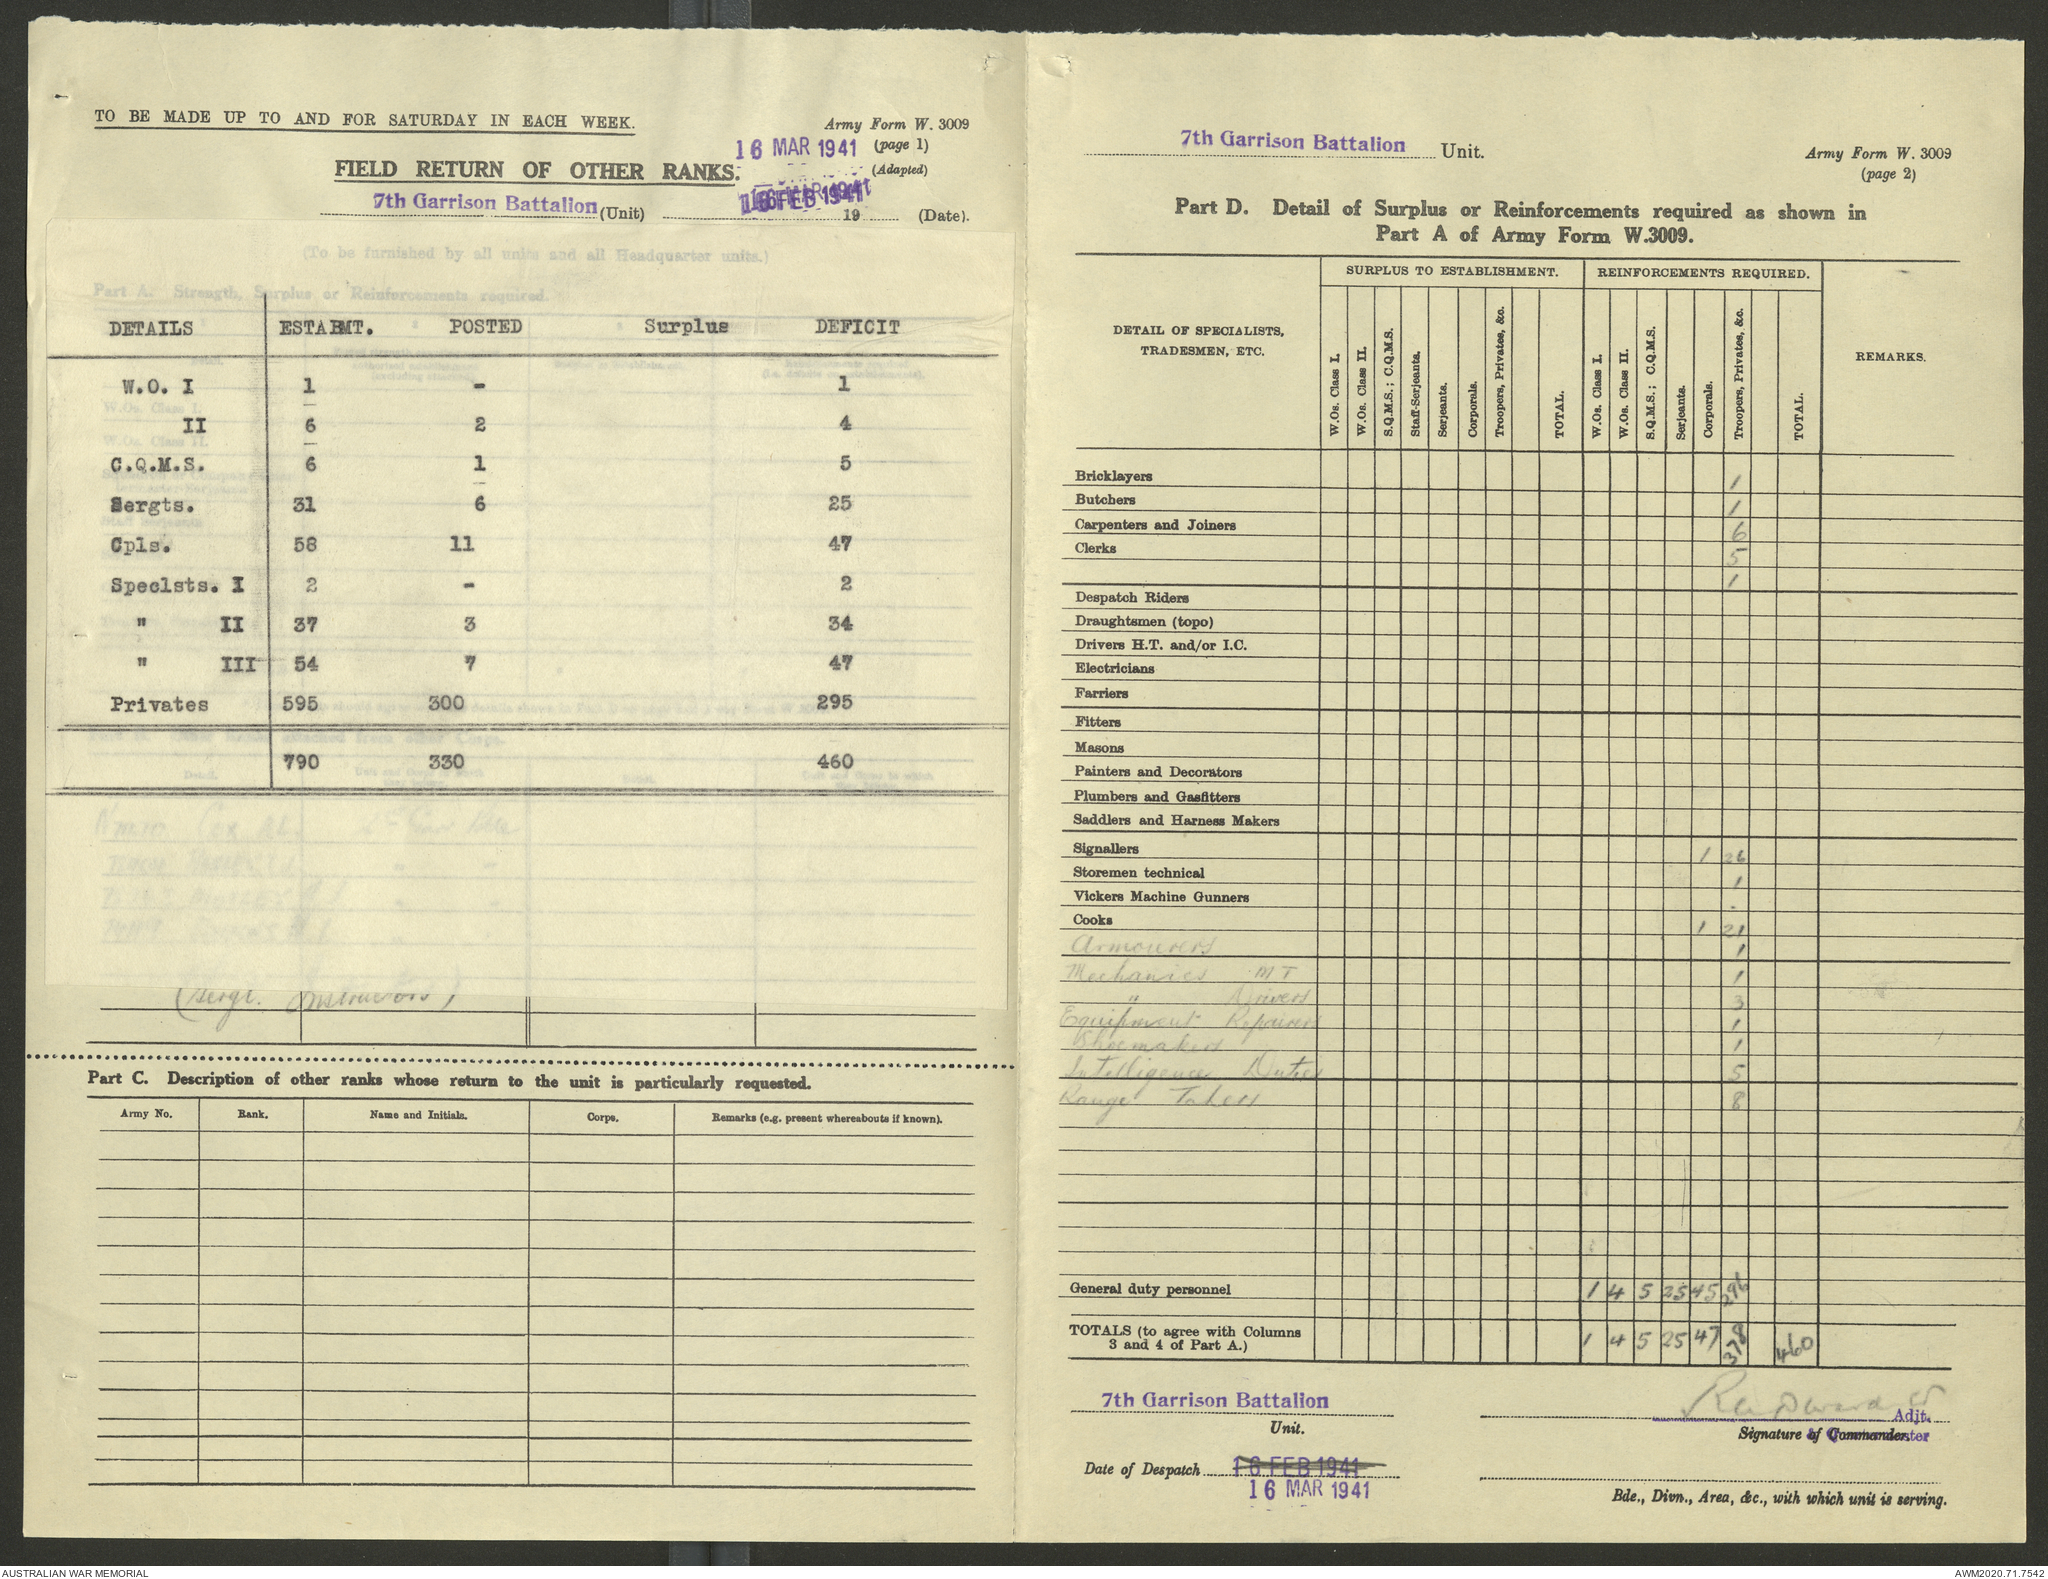 TO BE MADE UP TO AND FOR SATURDAY IN EACH WEEK.
Army Form W. 3009
16 MAR 1941 (page 1)
FIELD RETURN OF OTHER RANKS. (Adapted)
16 FEB 1941
7th Garrison Battalion (Unit) 19 (Date).
(To be furnished by all units and all Headquarter units.)
Part A. Strength, Surplus or Reinforcements required.
DETAILS ESTABMT. POSTED Surplus DEFICIT
W.O. I 1 - 1
II 6 2 4
C.Q.M.S. 6 1 5
Sergts. 31 6 25
Cpls. 58 11 47
Speclsts. I 2 - 2
" II 37 3 34
" III 54 7 47
Privates 595 300 295
790 330 460
(Sergt. Instructors)
Part C. Description of other ranks whose return to the unit is particularly requested.
Army No. Rank. Name and Initials. Corps. Remarks (e.g. present whereabouts if known).
7th Garrison Battalion Unit.
Army Form W. 3009
(page 2)
Part D. Detail of Surplus or Reinforcements required as shown in
Part A of Army Form W.3009.
DETAIL OF SPECIALISTS, TRADESMEN, ETC.
SURPLUS TO ESTABLISHMENT. REINFORCEMENTS REQUIRED. REMARKS.
W.Os. Class I. W.Os. Class II. S.Q.M.S.; C.Q.M.S. Staff-Serjeants. Serjeants. Corporals. Troopers, Privates, &c. TOTAL.
W.Os. Class I. W.Os. Class II. S.Q.M.S.; C.Q.M.S. Serjeants. Corporals. Troopers, Privates, &c. TOTAL.
Bricklayers 1
Butchers 1
Carpenters and Joiners 6
Clerks 5
1
Despatch Riders
Draughtsmen (topo)
Drivers H.T. and/or I.C.
Electricians
Farriers
Fitters
Masons
Painters and Decorators
Plumbers and Gasfitters
Saddlers and Harness Makers
Signallers 1 26
Storemen technical 1
Vickers Machine Gunners -
Cooks 1 21
Armourers 1
Mechanics MT 1
" Drivers 3
Equipment Repairers 1
Shoemakers 1
Intelligence Duties 5
Range Takers 8
General duty personnel 1 4 5 25 45 296
TOTALS (to agree with Columns
3 and 4 of Part A.) 1 4 5 25 47 378 460
7th Garrison Battalion
Unit.
Adjt.
Signature of Commander.
Date of Despatch 16 FEB 1941
16 MAR 1941
Bde., Divn., Area, &c., with which unit is serving.
AUSTRALIAN WAR MEMORIAL
AWM2020.71.7542